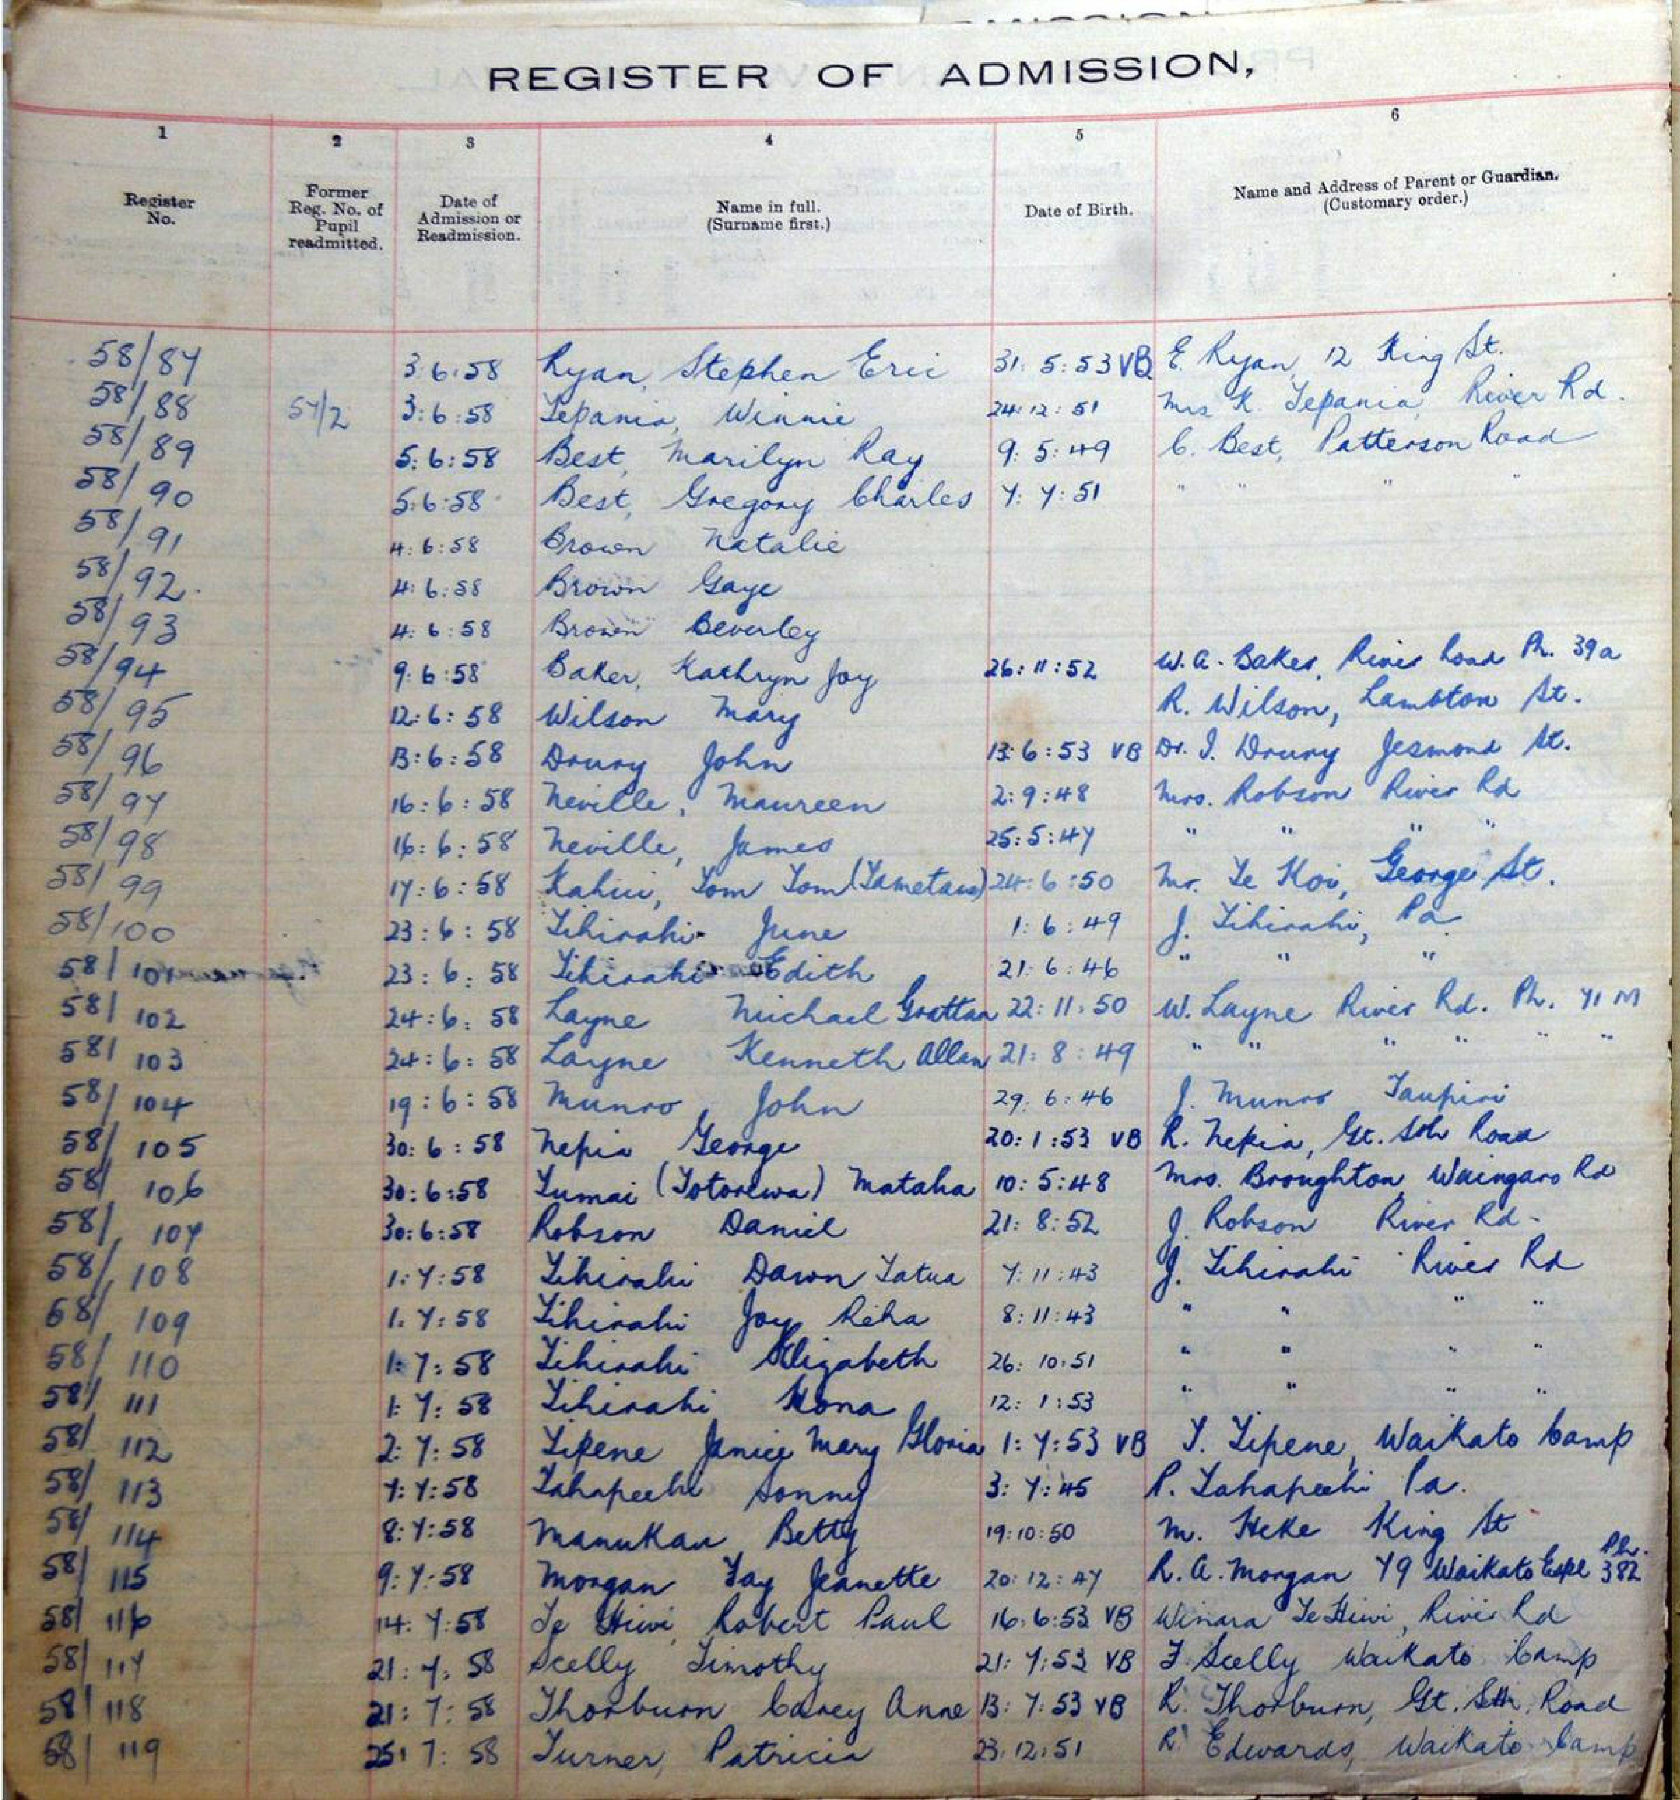 REGISTER OF ADMISSION,
1 2 3 4 5 6
Register No. Former Reg. No. of Pupil readmitted. Date of Admission or Readmission. Name in full. (Surname first.) Date of Birth. Name and Address of Parent or Guardian. (Customary order.)
58/87 3:6:58 Ryan, Stephen Eric 31:5:53 VB E. Ryan, 12 King St.
58/88 57/2 3:6:58 Tepania, Winnie 24:12:51 Mrs K. Tepania, River Rd.
58/89 5:6:58 Best, Marilyn Ray 9:5:49 C. Best, Patterson Road
58/90 5:6:58 Best, Gregory Charles 7:7:51 " " " "
58/91 4:6:58 Brown Natalie
58/92. 4:6:58 Brown Gaye
58/93 4:6:58 Brown Beverley
58/94 9:6:58 Baker, Kathryn Joy 26:11:52 W.A. Baker, River Road Ph. 39a
58/95 12:6:58 Wilson Mary R. Wilson, Lambton St.
58/96 13:6:58 Drury John 13:6:53 VB Dr. I. Drury Jesmond St.
58/97 16:6:58 Neville, Maureen 2:9:48 Mrs. Robson River Rd
58/98 16:6:58 Neville, James 25:5:47 " " " "
58/99 17:6:58 Kahui, Tom Tom 24:6:50 Mr. Te Koi, George St.
58/100 23:6:58 Tihirahi June 1:6:49 J. Tihirahi, Pa
58/101 23:6:58 Tihirahi Edith 21:6:46 " " "
58/102 24:6:58 Layne Michael Grattan 22:11:50 W. Layne River Rd. Ph. 71 M
58/103 24:6:58 Layne Kenneth Allan 21:8:49 " " " " " "
58/104 19:6:58 Munro John 29:6:46 J. Munro Taupiri
58/105 30:6:58 Nepia George 20:1:53 VB R. Nepia, Gt. Sth Road
58/106 30:6:58 Tumai (Totorewa) Mataha 10:5:48 Mrs. Broughton Waingaro Rd
58/107 30:6:58 Robson Daniel 21:8:52 J. Robson River Rd.
58/108 1:7:58 Tihirahi Dawn Tatua 7:11:43 J. Tihirahi River Rd
58/109 1:7:58 Tihirahi Joy Reha 8:11:43 " " " "
58/110 1:7:58 Tihirahi Elizabeth 26:10:51 " " " "
58/111 1:7:58 Tihirahi Hona 12:1:53 " " " "
58/112 2:7:58 Tipene Janice Mary Gloria 1:7:53 VB T. Tipene, Waikato Camp
58/113 7:7:58 Tahapeehi Sonny 3:7:45 P. Tahapeehi Pa.
58/114 8:7:58 Manukau Betty 19:10:50 M. Heke King St
58/115 9:7:58 Morgan Fay Jeanette 20:12:47 R.A. Morgan 79 Waikato Espl Ph. 382
58/116 14:7:58 Te Hiwi, Robert Paul 16:6:53 VB Winara Te Hiwi, River Rd
58/117 21:7:58 Scelly Timothy 21:7:53 VB F. Scelly Waikato Camp
58/118 21:7:58 Thorburn Carey Anne 13:7:53 VB R. Thorburn, Gt. Sth. Road
58/119 25:7:58 Turner, Patricia 23:12:51 R. Edwards, Waikato Camp